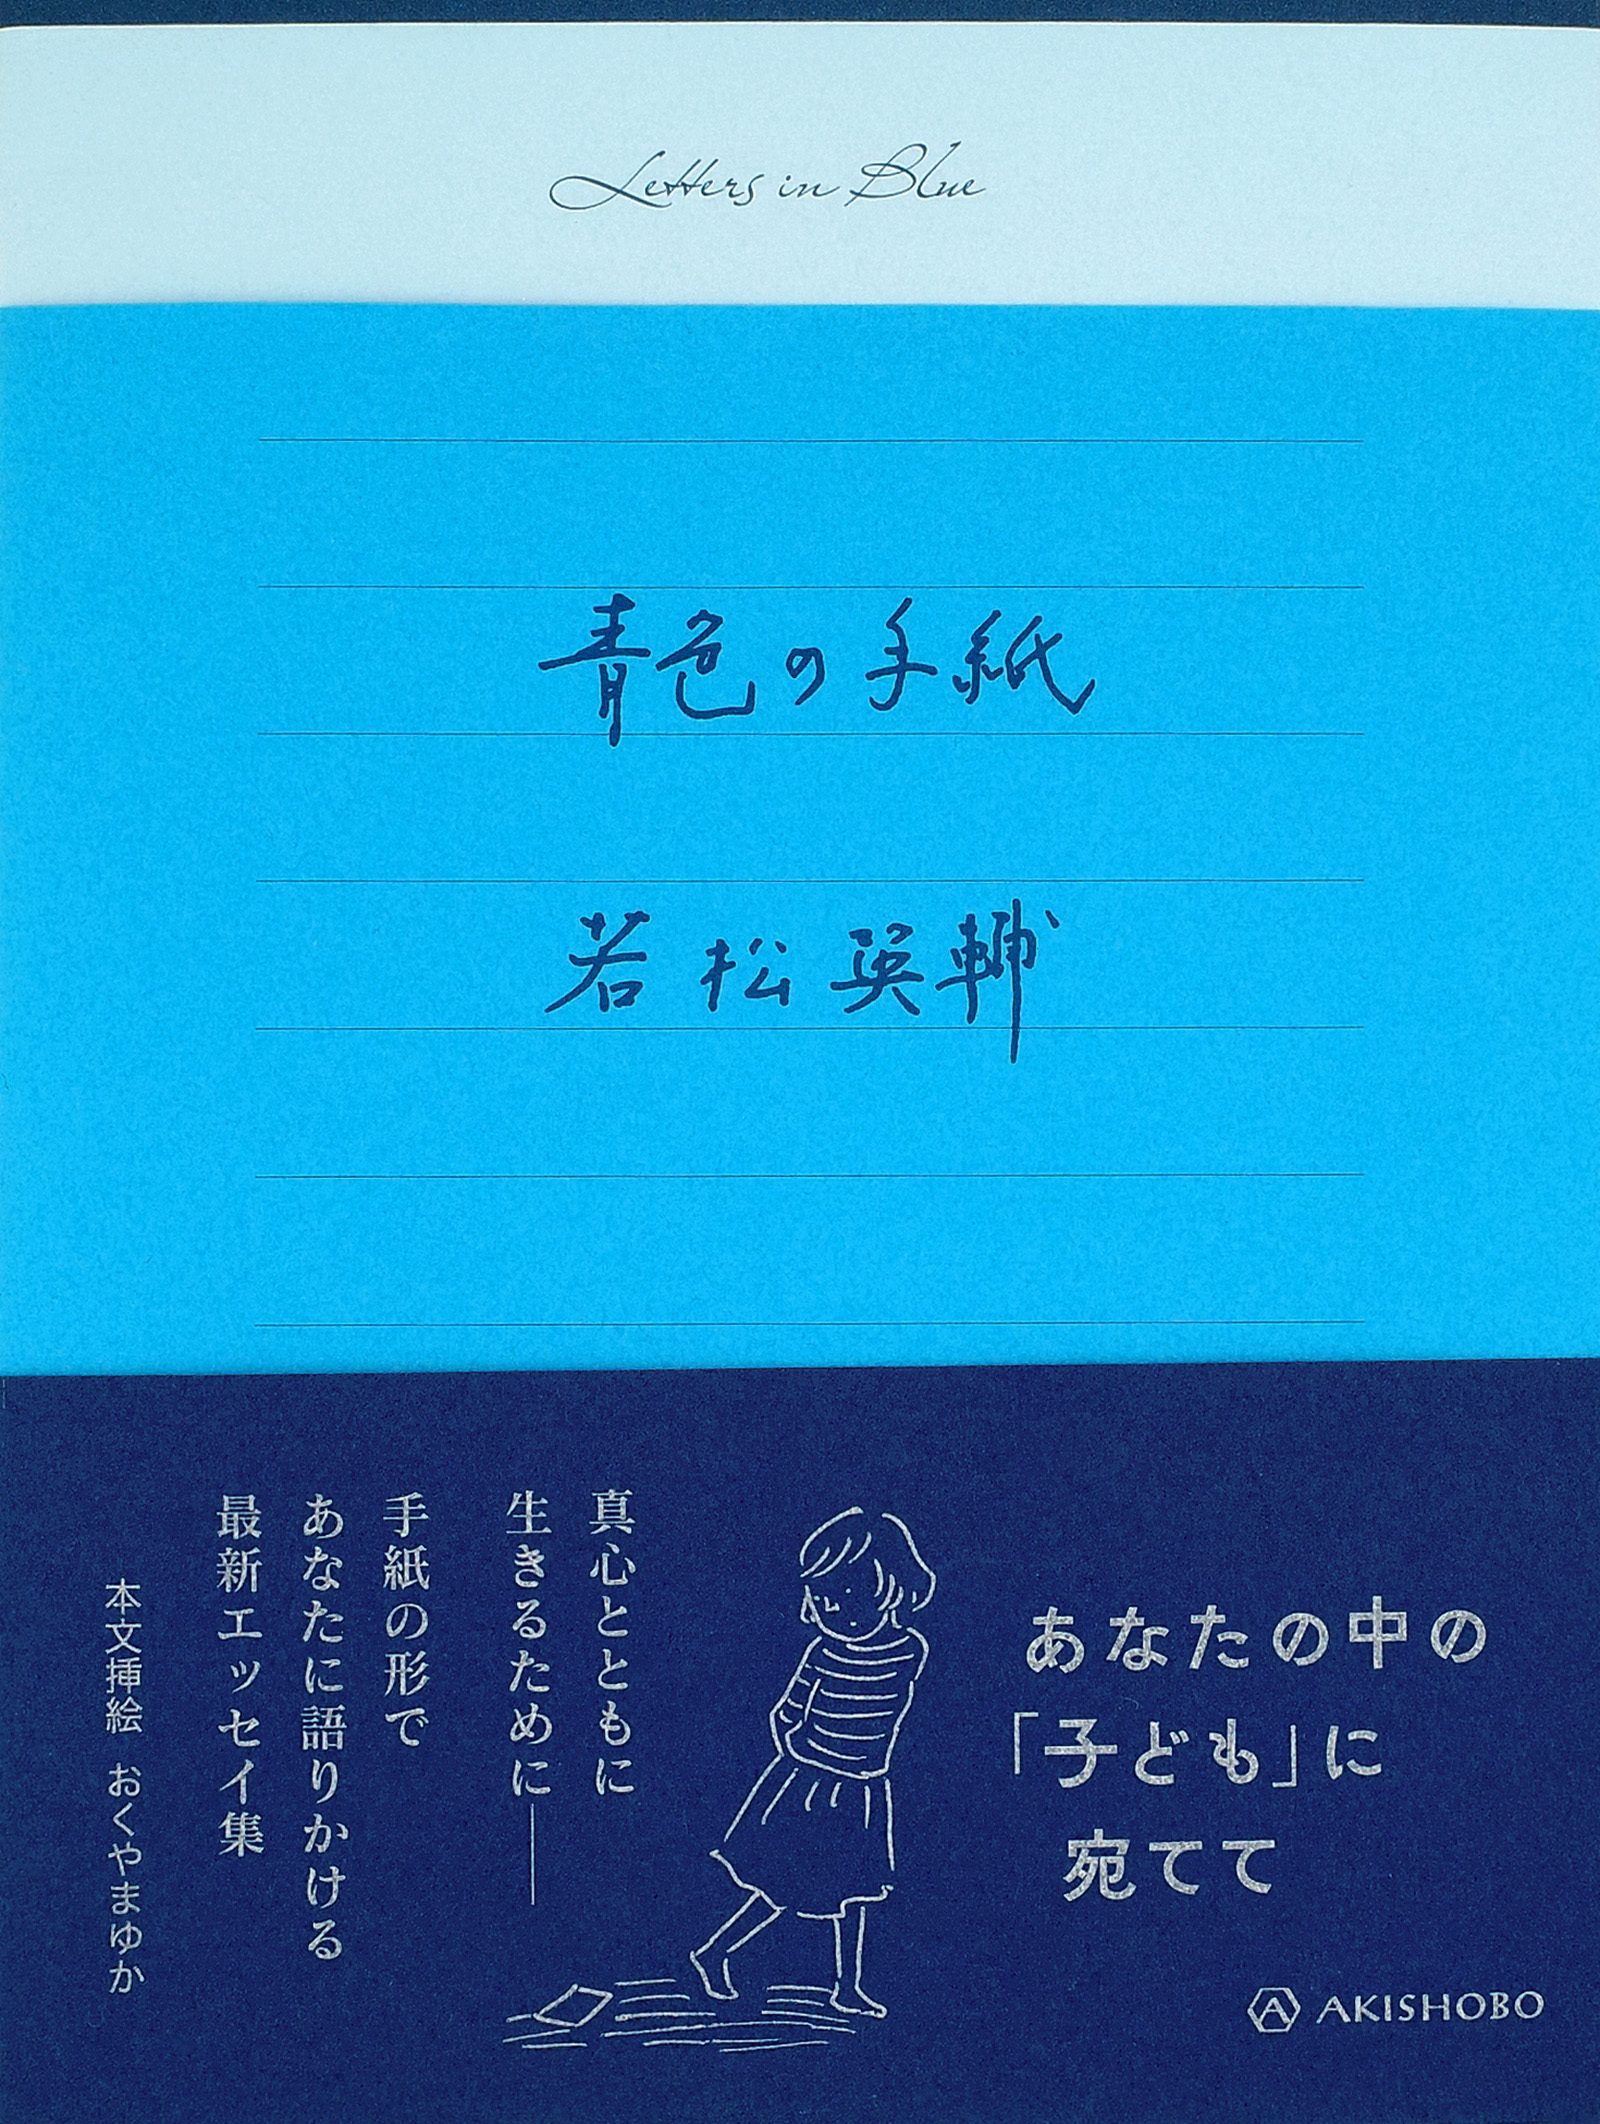 Letters in Blue
青色の手紙
若松英輔
あなたの中の
「子ども」に
宛てて
真心とともに
生きるために——
手紙の形で
あなたに語りかける
最新エッセイ集
本文挿絵 おくやまゆか
AKISHOBO